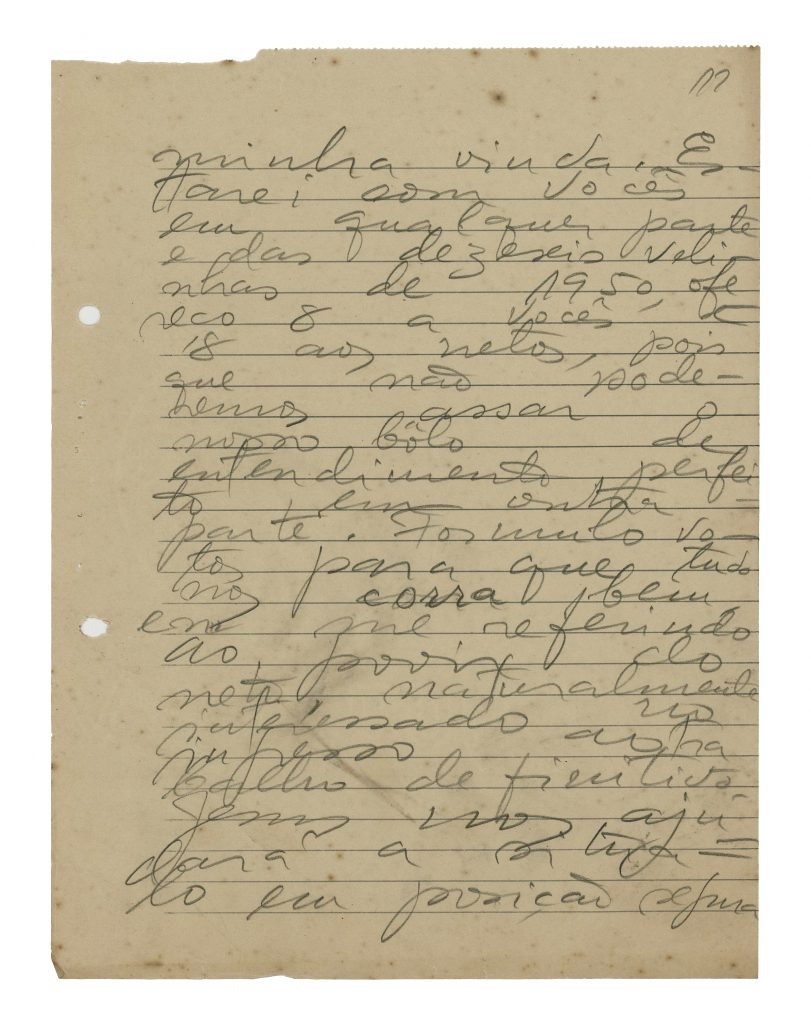 11
minha vinda. Es-
tarei com vocês
em qualquer parte
e das dezeseis veli-
nhas de 1950, ofe
reço 8 a vocês e
8 aos netos, pois
que não pode-
remos assar o
nosso bôlo de
entendimento perfei
to em outra
parte. Formulo vo-
tos para que tudo
nos corra bem,
em me referindo
ao do
neto, naturalmente
ingressado no
ingresso ao tra
balho definitivo.
Jesus nos aju-
dará a situa-
lo em posição segura